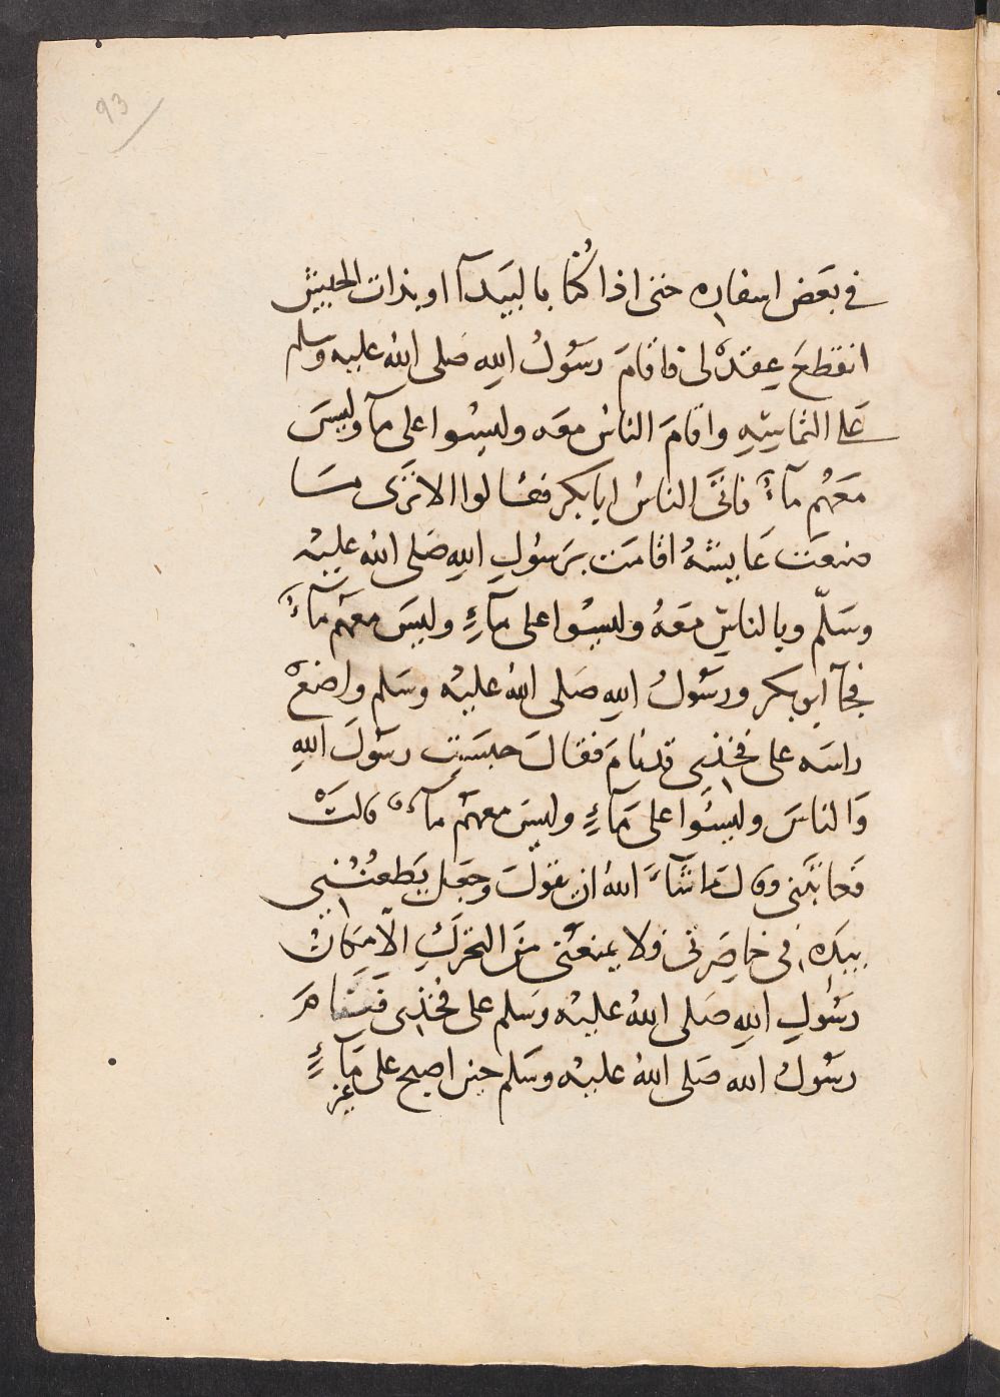 93
في بعَض اسفاره حتى اذا كُنا بالبيَدآ او بذات الجيش
انقطعَ عِقدٌ لي فاقامَ رسَولُ اللهِ صَلى اللهُ عليه وسلم
عَلى التماسِهِ واقامَ الناسُ معَه وليسُوا على مآ وليسَ
معَهُم مآءٌ فاتىَ الناسُ ابا بكر فقالوا الا ترَى مَا
صنعَت عَايشهُ اقامَت برَسُولِ اللهِ صَلى اللهُ عليْه
وسَلّم وبالناسِ معَهُ وليسُوا على مآءٍ وليسَ معهُم مآءٌ
فجآ ابو بكر ورسَولُ اللهِ صَلى اللهُ عليْه وسَلم واضعٌ
راسَه على فخذِي قد نامَ فقالَ حبسَتِ رسَولَ اللهِ
وَالناسَ وليسُوا على مَآءٍ وليسَ معهُم مآءٌ قالتْ
فعاتبَني وقال مَا شآءَ اللهُ ان يقولَ وجعَل يَطعُنُني
بيَدِه في خاصِرتي فلا يمنعُني منَ التحرّكِ الاّ مَكانُ
رسَولِ اللهِ صَلى اللهُ عليْه وسَلم على فخذِي فنَامَ
رسَولُ الله صَلى اللهُ عليْه وسَلم حين اصبح على غير مَآءٍ